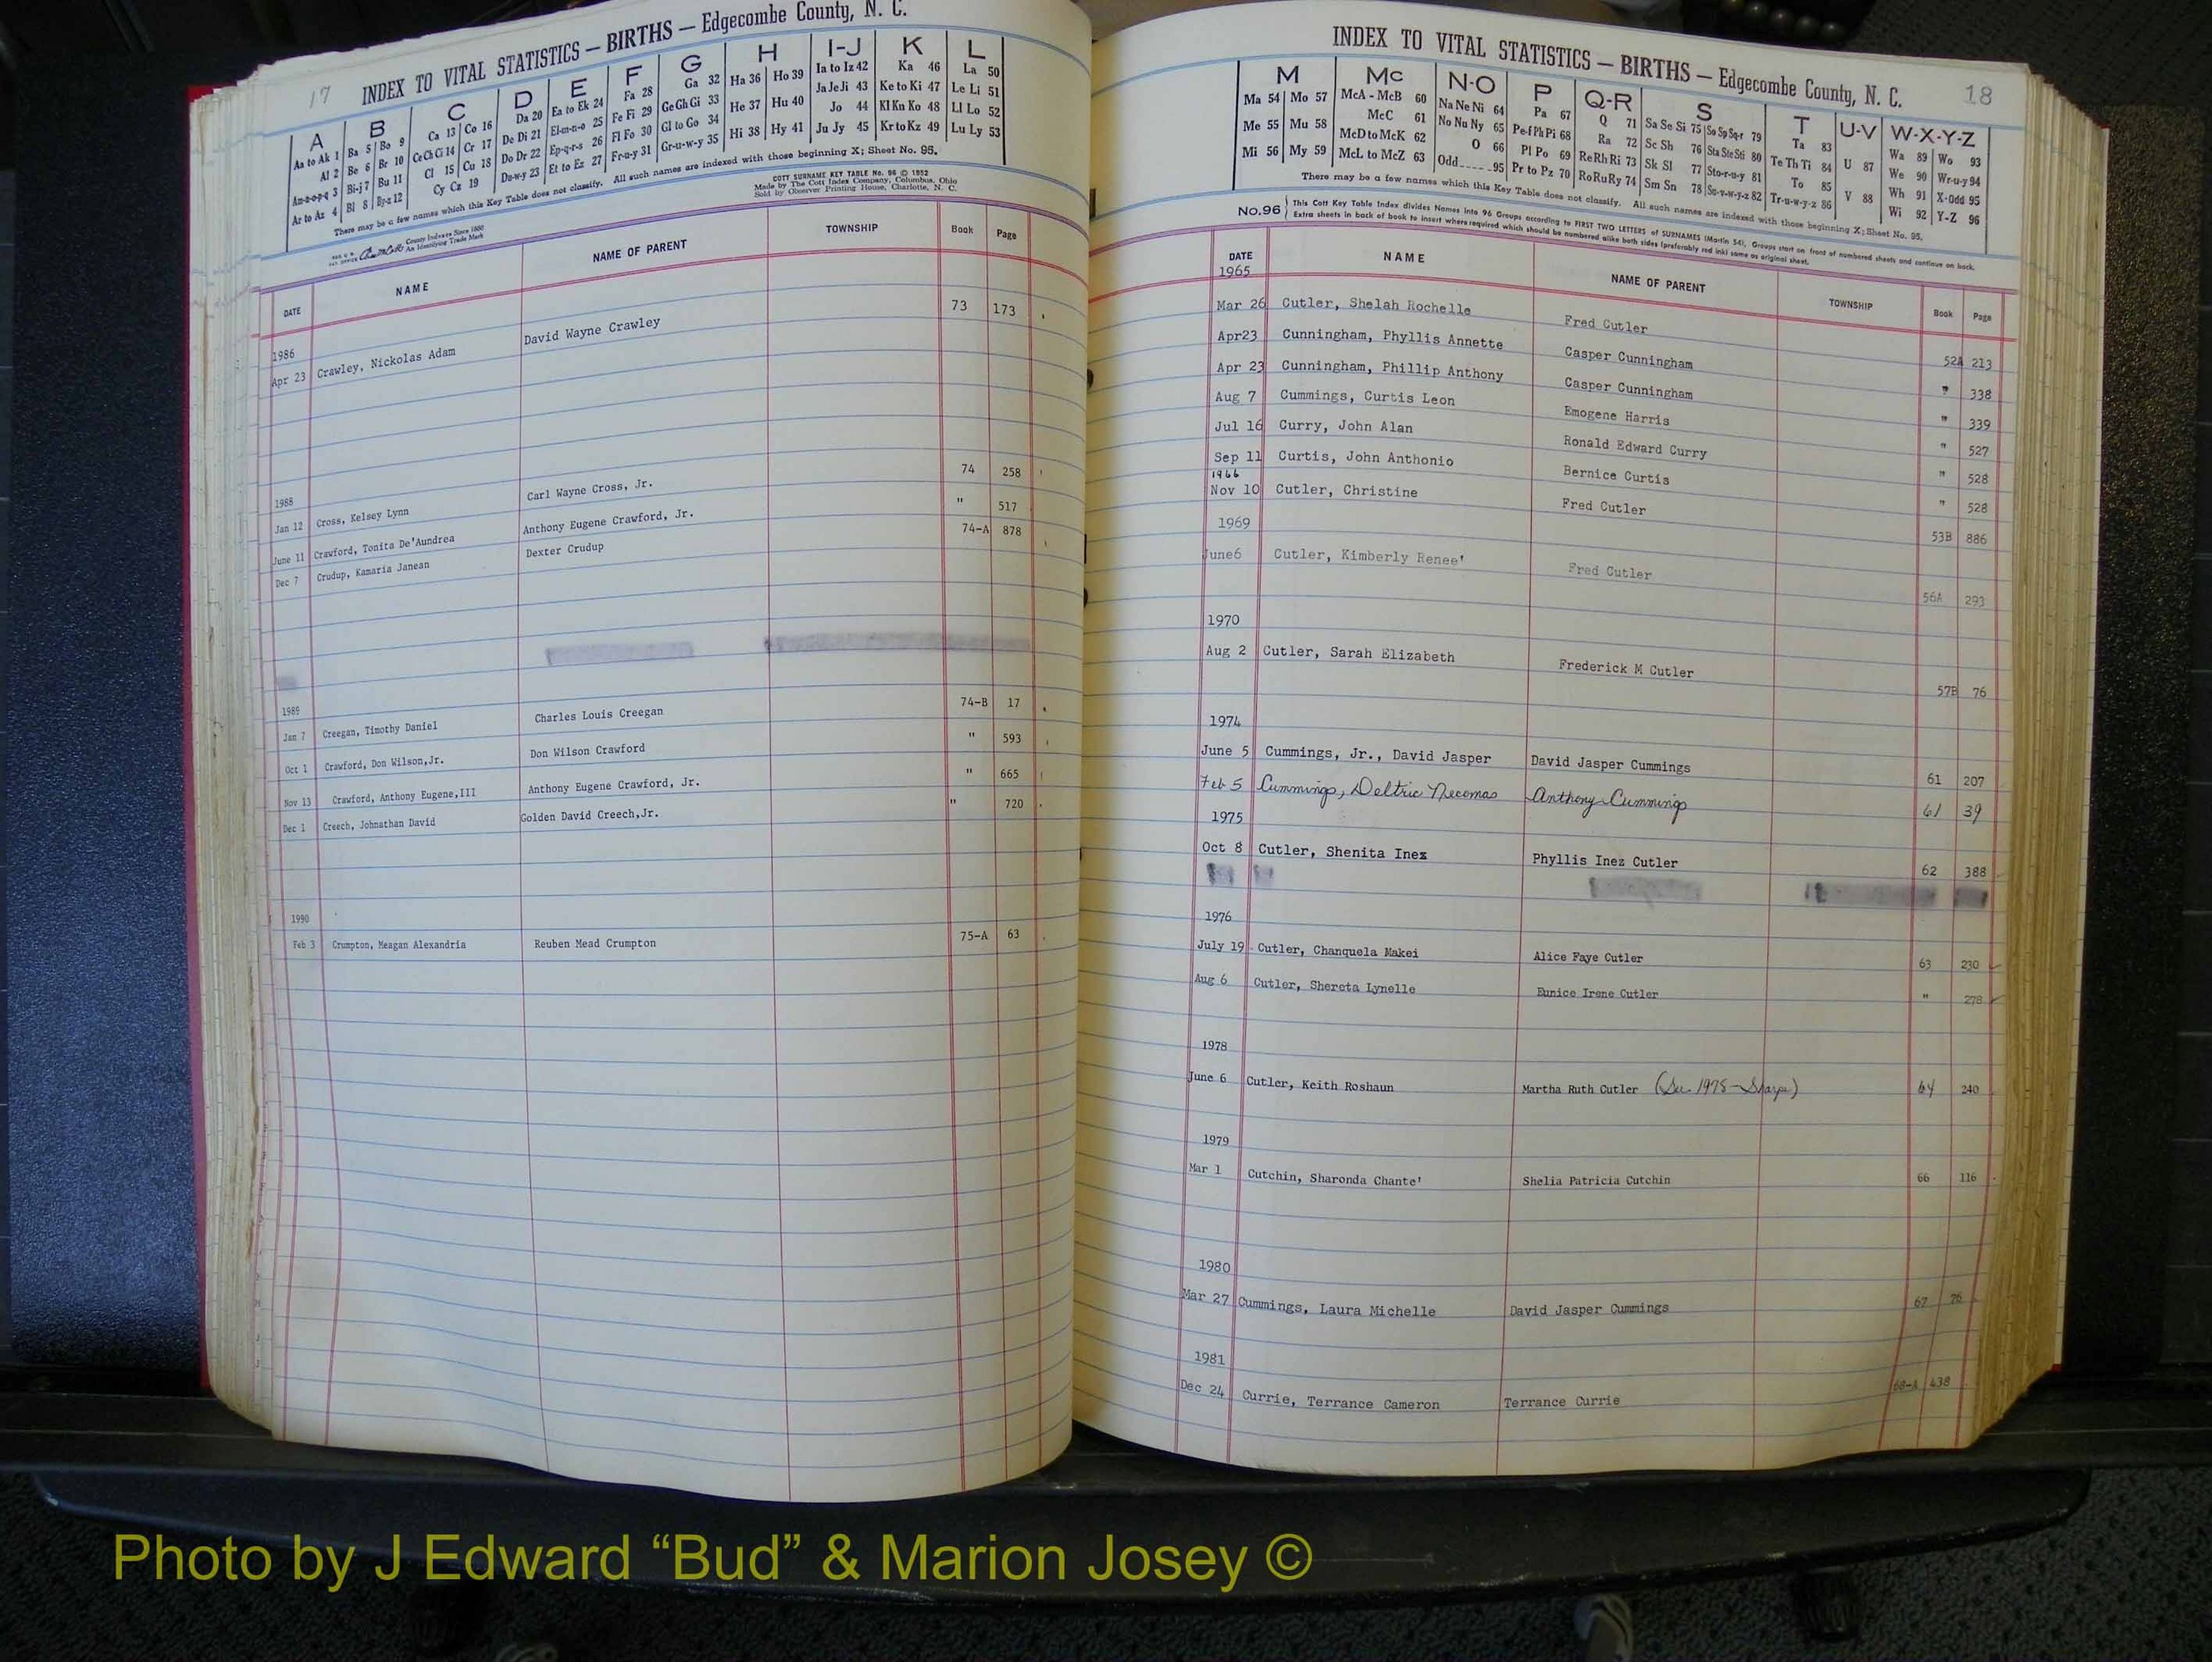 17
INDEX TO VITAL STATISTICS — BIRTHS — Edgecombe County, N. C.
A B C D E F G H I-J K L
Aa to Ak 1 Ba 5 Bo 9 Ca 13 Co 16 Da 20 Ea to Ek 24 Fa 28 Ga 32 Ha 36 Ho 39 Ia to Iz 42 Ka 46 La 50
Al 2 Be 6 Br 10 Ce Ch Ci 14 Cr 17 De Di 21 El-m-n-o 25 Fe Fi 29 Ge Gh Gi 33 He 37 Hu 40 Ja Je Ji 43 Ke to Ki 47 Le Li 51
Am-n-o-p-q 3 Bi-j 7 Bu 11 Cl 15 Cu 18 Do Dr 22 Ep-q-r-s 26 Fl Fo 30 Gl to Go 34 Hi 38 Hy 41 Jo 44 Kl Kn Ko 48 Ll Lo 52
Ar to Az 4 Bl 8 By-z 12 Cy Cz 19 Du-w-y 23 Et to Ez 27 Fr-u-y 31 Gr-u-w-y 35 Ju Jy 45 Kr to Kz 49 Lu Ly 53
There may be a few names which this Key Table does not classify. All such names are indexed with those beginning X; Sheet No. 95.
COTT SURNAME KEY TABLE No. 96 © 1952
Made by The Cott Index Company, Columbus, Ohio
Sold by Observer Printing House, Charlotte, N. C.
County Indexes Since 1880
An Identifying Trade Mark
DATE NAME NAME OF PARENT TOWNSHIP Book Page
1986
Apr 23 Crawley, Nickolas Adam David Wayne Crawley 73 173
1988
Jan 12 Cross, Kelsey Lynn Carl Wayne Cross, Jr. 74 258
June 11 Crawford, Tonita De'Aundrea Anthony Eugene Crawford, Jr. " 517
Dec 7 Crudup, Kamaria Janean Dexter Crudup 74-A 878
1989
Jan 7 Creegan, Timothy Daniel Charles Louis Creegan 74-B 17
Oct 1 Crawford, Don Wilson,Jr. Don Wilson Crawford " 593
Nov 13 Crawford, Anthony Eugene,III Anthony Eugene Crawford, Jr. " 665
Dec 1 Creech, Johnathan David Golden David Creech,Jr. " 720
1990
Feb 3 Crumpton, Meagan Alexandria Reuben Mead Crumpton 75-A 63
INDEX TO VITAL STATISTICS — BIRTHS — Edgecombe County, N. C.
18
M Mc N-O P Q-R S T U-V W-X-Y-Z
Ma 54 Mo 57 McA - McB 60 Na Ne Ni 64 Pa 67 Q 71 Sa Se Si 75 So Sp Sq-r 79 Ta 83 U 87 Wa 89 Wo 93
Me 55 Mu 58 McC 61 No Nu Ny 65 Pe-f Ph Pi 68 Ra 72 Sc Sh 76 Sta Ste Sti 80 Te Th Ti 84 V 88 We 90 Wr-u-y 94
Mi 56 My 59 McD to McK 62 O 66 Pl Po 69 Re Rh Ri 73 Sk Sl 77 Sto-r-u-y 81 To 85 Wh 91 X-Odd 95
McL to McZ 63 Odd 95 Pr to Pz 70 Ro Ru Ry 74 Sm Sn 78 Su-v-w-y-z 82 Tr-u-w-y-z 86 Wi 92 Y-Z 96
There may be a few names which this Key Table does not classify. All such names are indexed with those beginning X; Sheet No. 95.
No.96 This Cott Key Table Index divides Names into 96 Groups according to FIRST TWO LETTERS of SURNAMES (Martin 54). Groups start on front of numbered sheets and continue on back.
Extra sheets in back of book to insert where required which should be numbered alike both sides (preferably red ink) same as original sheet.
DATE NAME NAME OF PARENT TOWNSHIP Book Page
1965
Mar 26 Cutler, Shelah Rochelle Fred Cutler 52A 213
Apr23 Cunningham, Phyllis Annette Casper Cunningham " 338
Apr 23 Cunningham, Phillip Anthony Casper Cunningham " 339
Aug 7 Cummings, Curtis Leon Emogene Harris " 527
Jul 16 Curry, John Alan Ronald Edward Curry " 528
Sep 11 Curtis, John Anthonio Bernice Curtis " 528
1966
Nov 10 Cutler, Christine Fred Cutler 53B 886
1969
June6 Cutler, Kimberly Renee' Fred Cutler 56A 293
1970
Aug 2 Cutler, Sarah Elizabeth Frederick M Cutler 57B 76
1974
June 5 Cummings, Jr., David Jasper David Jasper Cummings 61 207
Feb 5 Cummings, Deltric Necomas Anthony Cummings 61 39
1975
Oct 8 Cutler, Shenita Inez Phyllis Inez Cutler 62 388
1976
July 19 Cutler, Chanquela Makei Alice Faye Cutler 63 230
Aug 6 Cutler, Shereta Lynelle Eunice Irene Cutler " 278
1978
June 6 Cutler, Keith Roshaun Martha Ruth Cutler (See 1978 - Sharpe) 64 240
1979
Mar 1 Cutchin, Sharonda Chante' Shelia Patricia Cutchin 66 116
1980
Mar 27 Cummings, Laura Michelle David Jasper Cummings 67 76
1981
Dec 24 Currie, Terrance Cameron Terrance Currie 68-A 438
Photo by J Edward “Bud” & Marion Josey ©